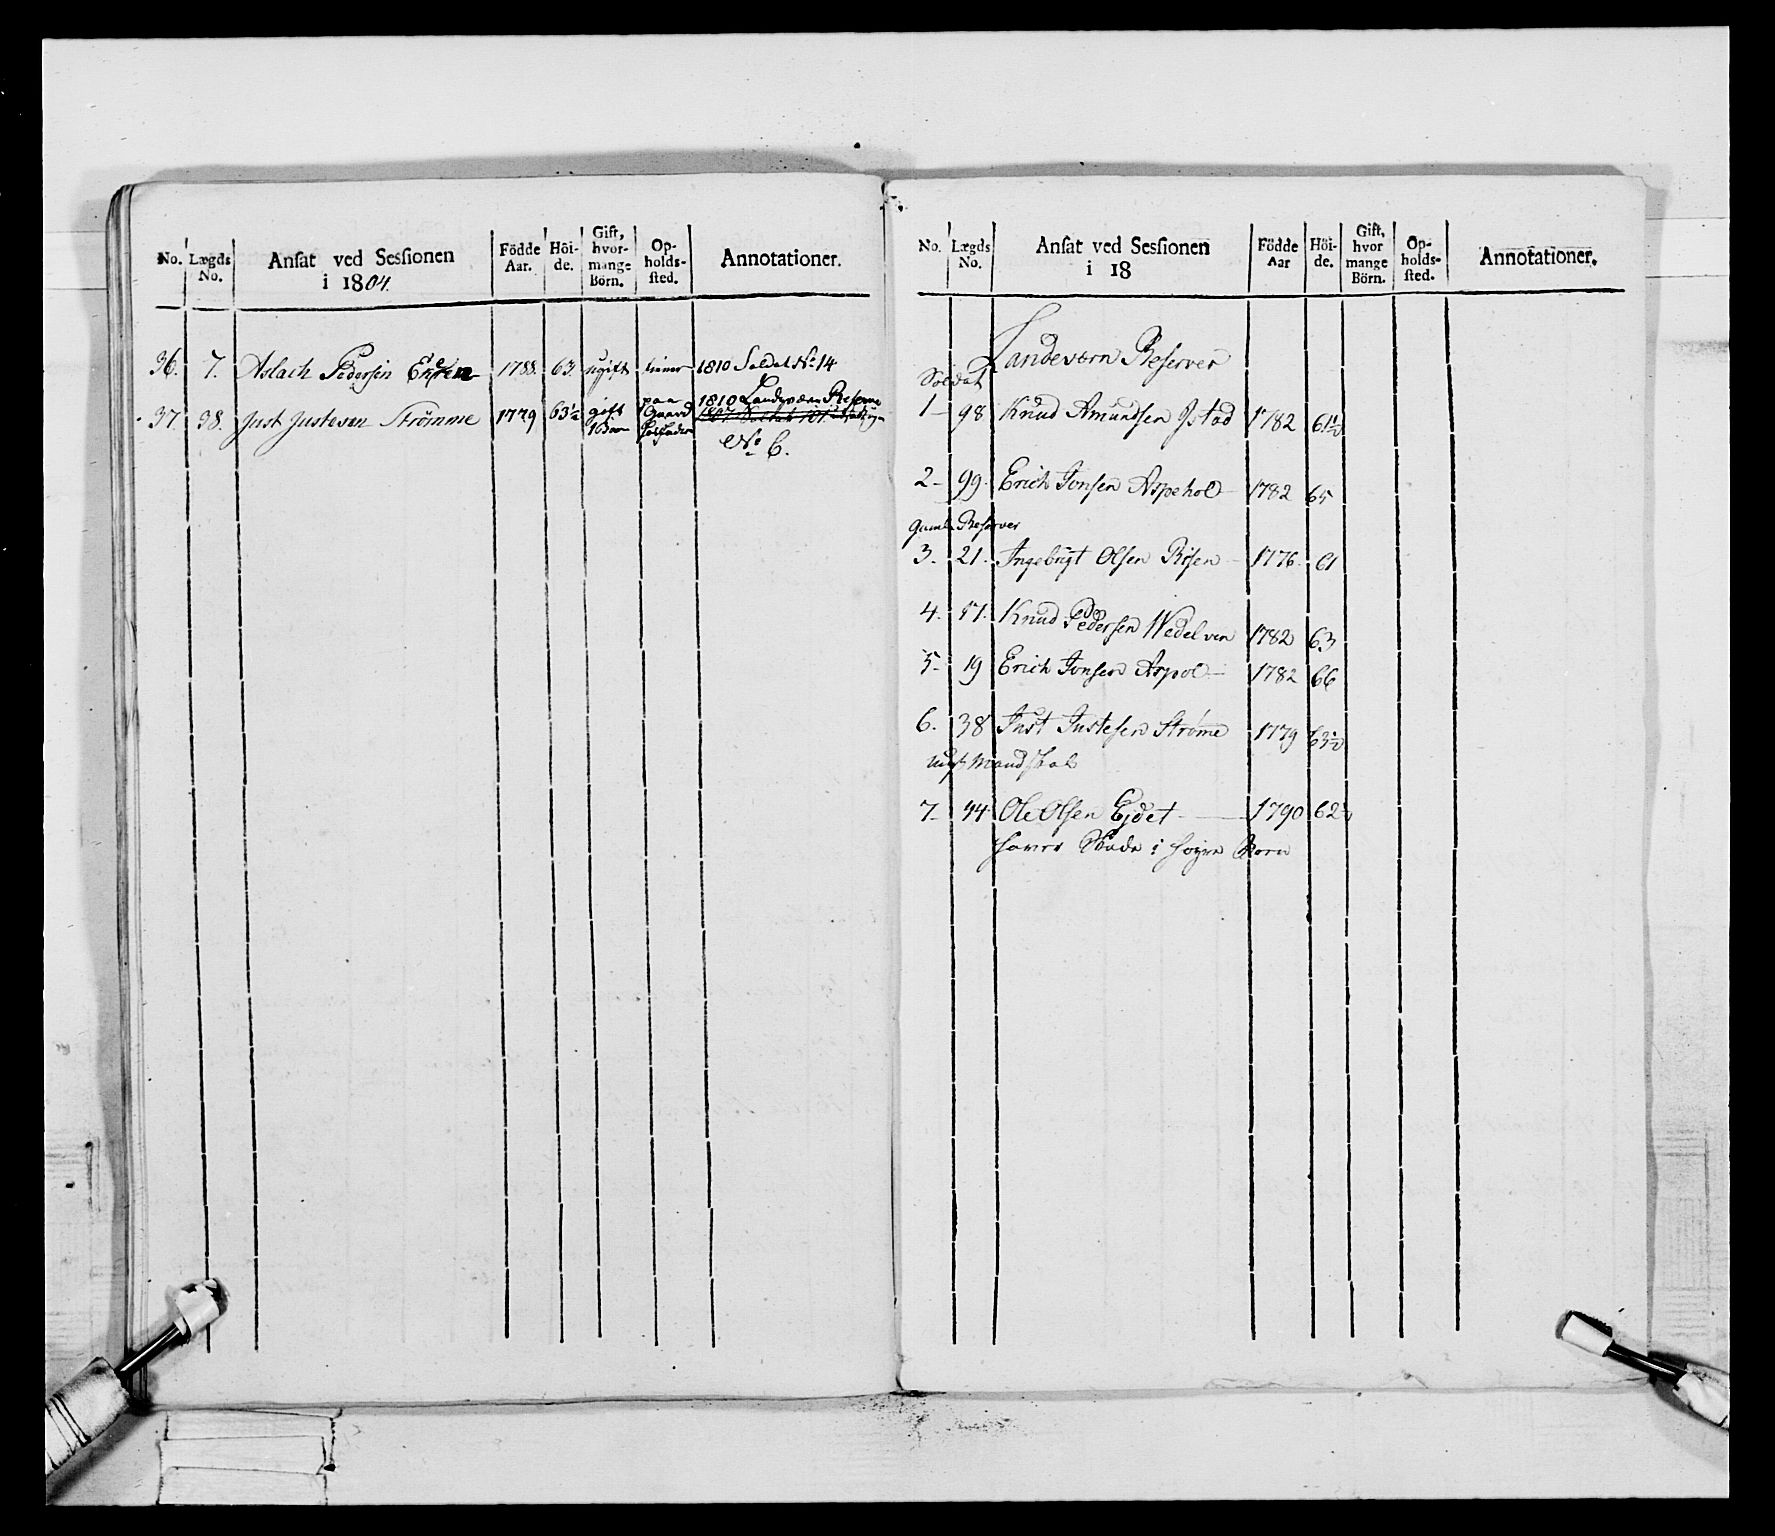 No. Lægds No. Ansat ved Sessionen i 1804. Födde Aar. Höi-de. Gift, hvor-mange Börn. Op-holds-sted. Annotationer.
36. 7. Aslach Pedersen 1788. 63. ugift tiener 1810 Soldat No 14
37. 38. Just Justesen Strömme 1779 63½ gift 1 Barn paa Gaard 1810 Landeværn Reserve
No 6.
No. Lægds No. Ansat ved Sessionen i 18 Födde Aar Höi-de. Gift, hvor mange Börn. Op-holds-sted. Annotationer.
Landevern Reserver
Soldat
1 - 98 Knud Amundsen Istad 1782 61½
2 - 99. Erich Jonsen Aspehol 1782 65
Gamle Reserver
3. 21. Ingebrigt Olsen Risen 1776. 61
4. 17. Knud Pedersen Wedelven 1782 63
5 - 19 Erich Jonsen Aspol 1782 66
6. 38 Just Justesen Strøme 1779 63½
ungt Mandskab
7. 44 Ole Olsen Ejdet 1790 62
haver Skade i